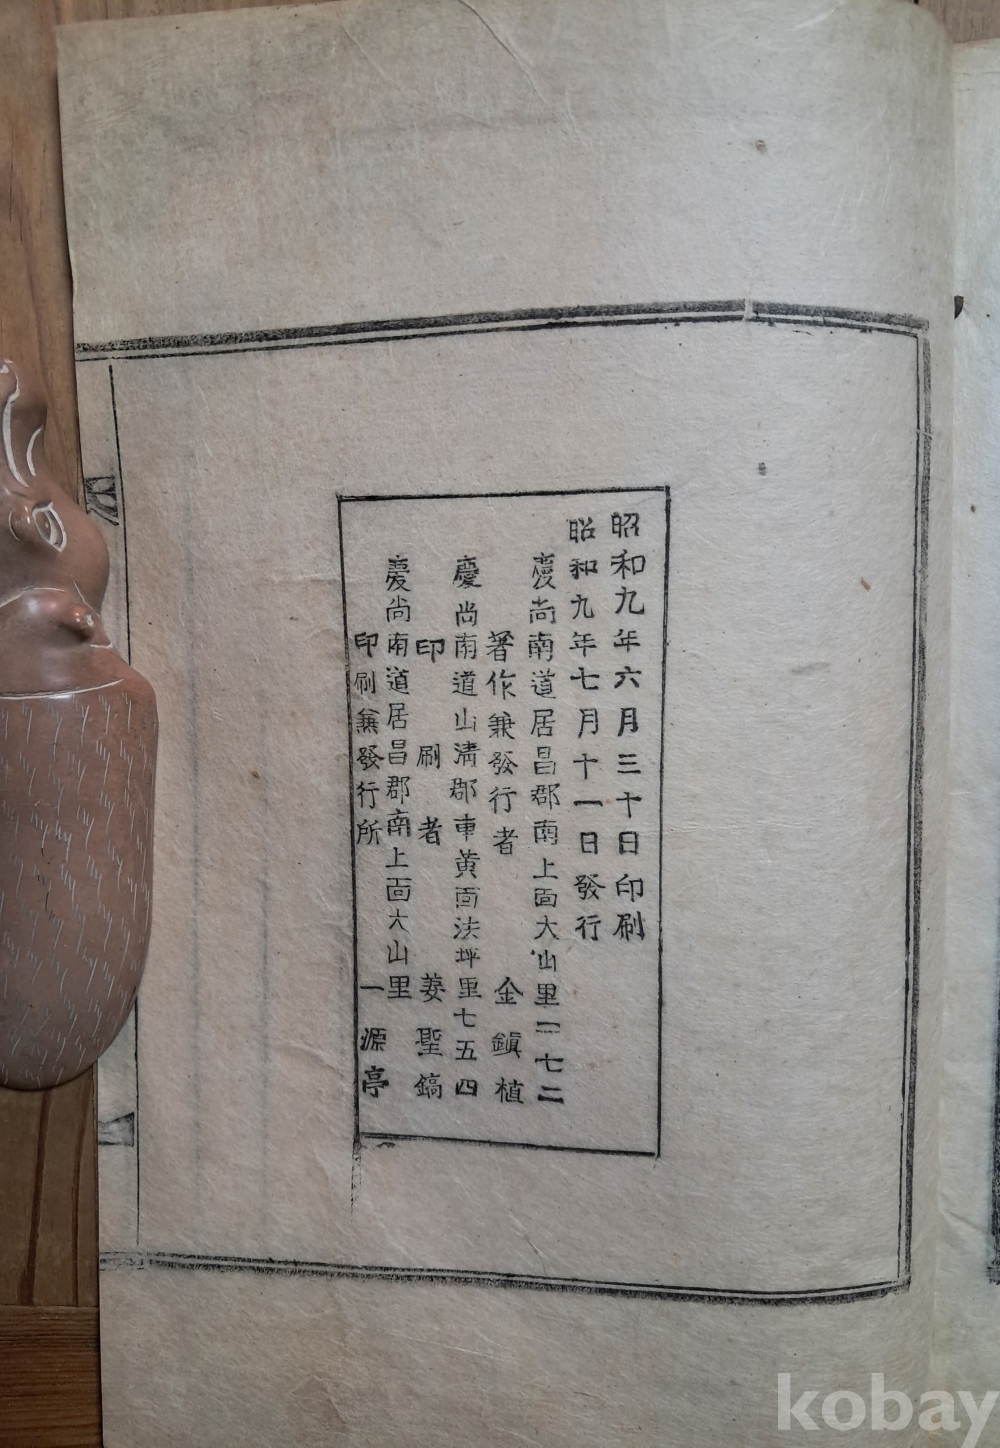 昭和九年六月三十日印刷
昭和九年七月十一日發行
慶尚南道居昌郡南上面大山里一二七二
著作兼發行者 金鎭植
慶尚南道山淸郡車黄面法坪里七五四
印刷者 姜聖鎬
慶尚南道居昌郡南上面大山里
印刷兼發行所 一源亭
kobay